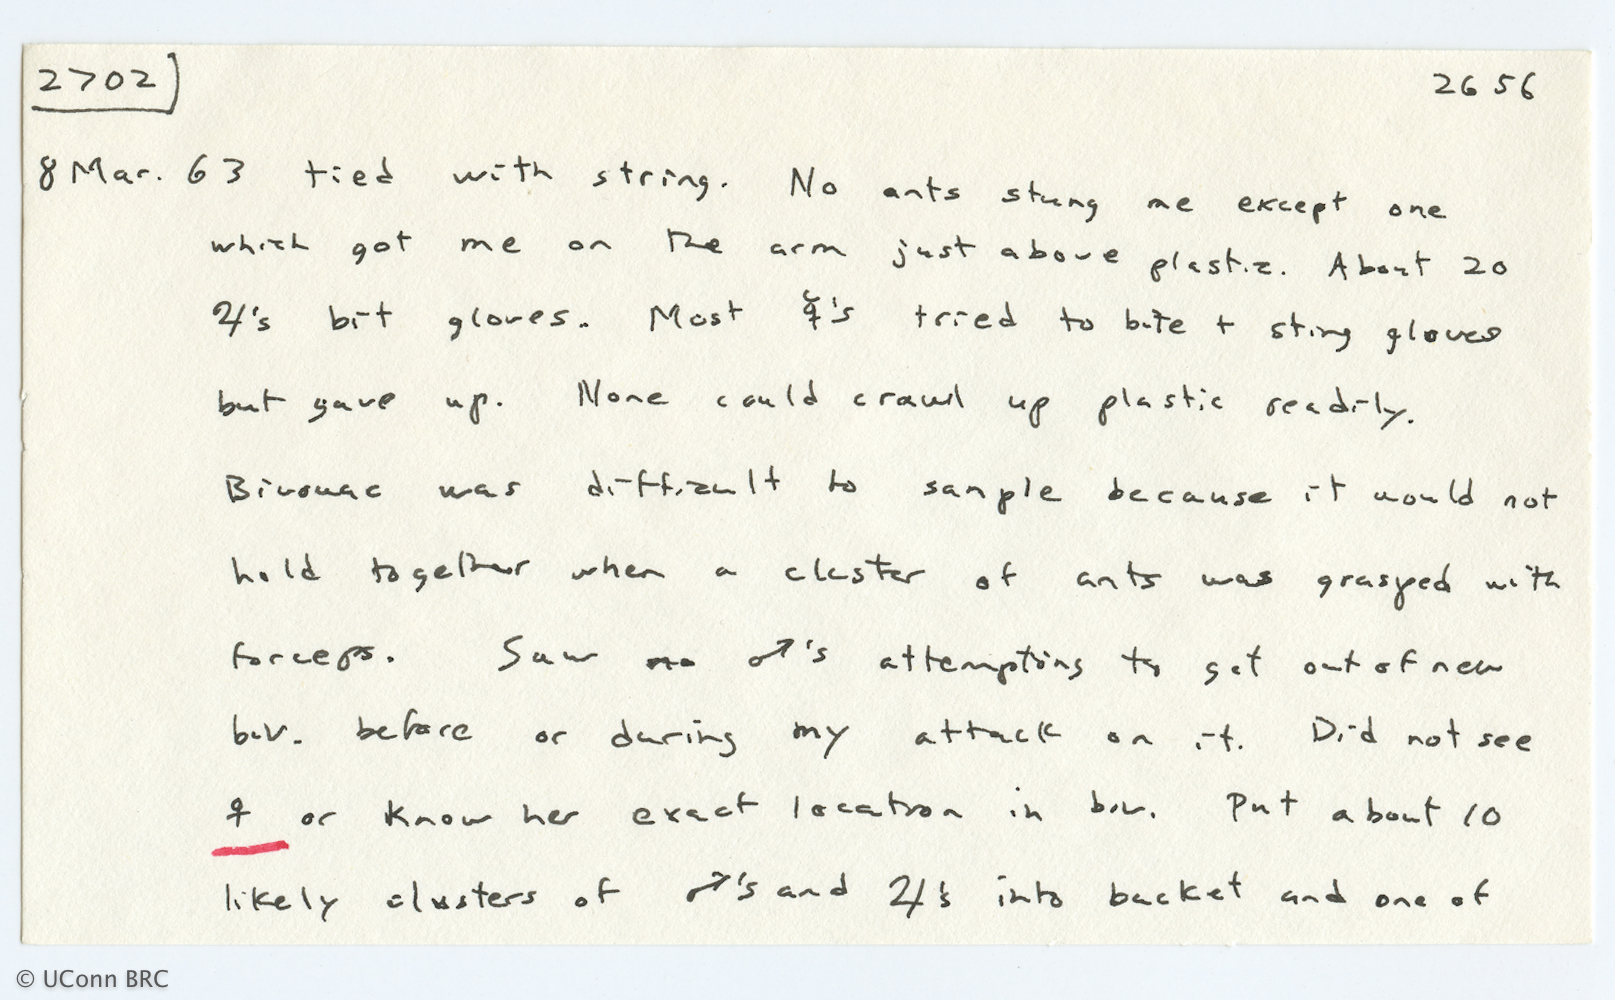 2702 2656
8 Mar. 63 tied with string. No ants stung me except one
which got me on the arm just above plastic. About 20
♃'s bit gloves. Most ☿'s tried to bite + sting gloves
but gave up. None could crawl up plastic readily.
Bivouac was difficult to sample because it would not
hold together when a cluster of ants was grasped with
forceps. Saw no ♂'s attempting to get out of new
biv. before or during my attack on it. Did not see
♀ or know her exact location in biv. Put about 10
likely clusters of ♂'s and ♃'s into bucket and one of
© UConn BRC